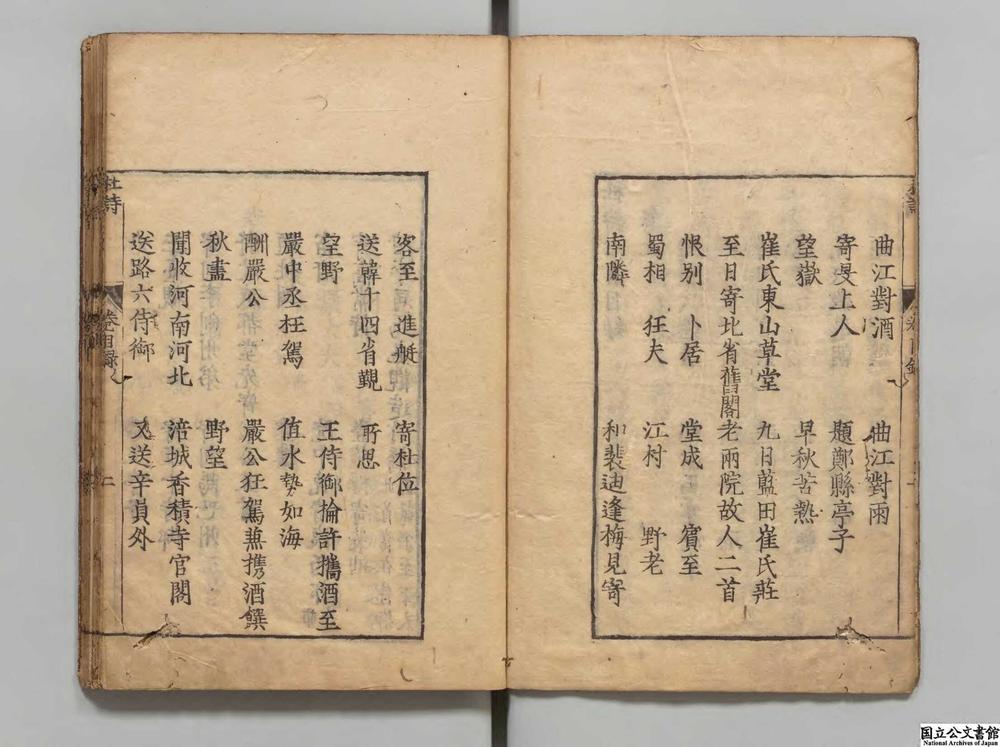 曲江對酒 曲江對雨
寄旻上人 題鄭縣亭子
望嶽 早秋苦熱
崔氏東山草堂 九日藍田崔氏莊
至日寄北省舊閣老兩院故人二首
恨别 卜居 堂成 賔至
蜀相 狂夫 江村 野老
南隣 和裴迪逢梅見寄
客至 進艇 寄杜位
送韓十四省覲 所思
望野 王侍御掄許攜酒至
嚴中丞枉駕 值水勢如海
酬嚴公 嚴公狂駕蒹携酒饌
秋盡 野望
聞收河南河北 涪城香積寺官閣
送路六侍御 又送辛員外
杜詩 卷目録 二
国立公文書館
National Archives of Japan